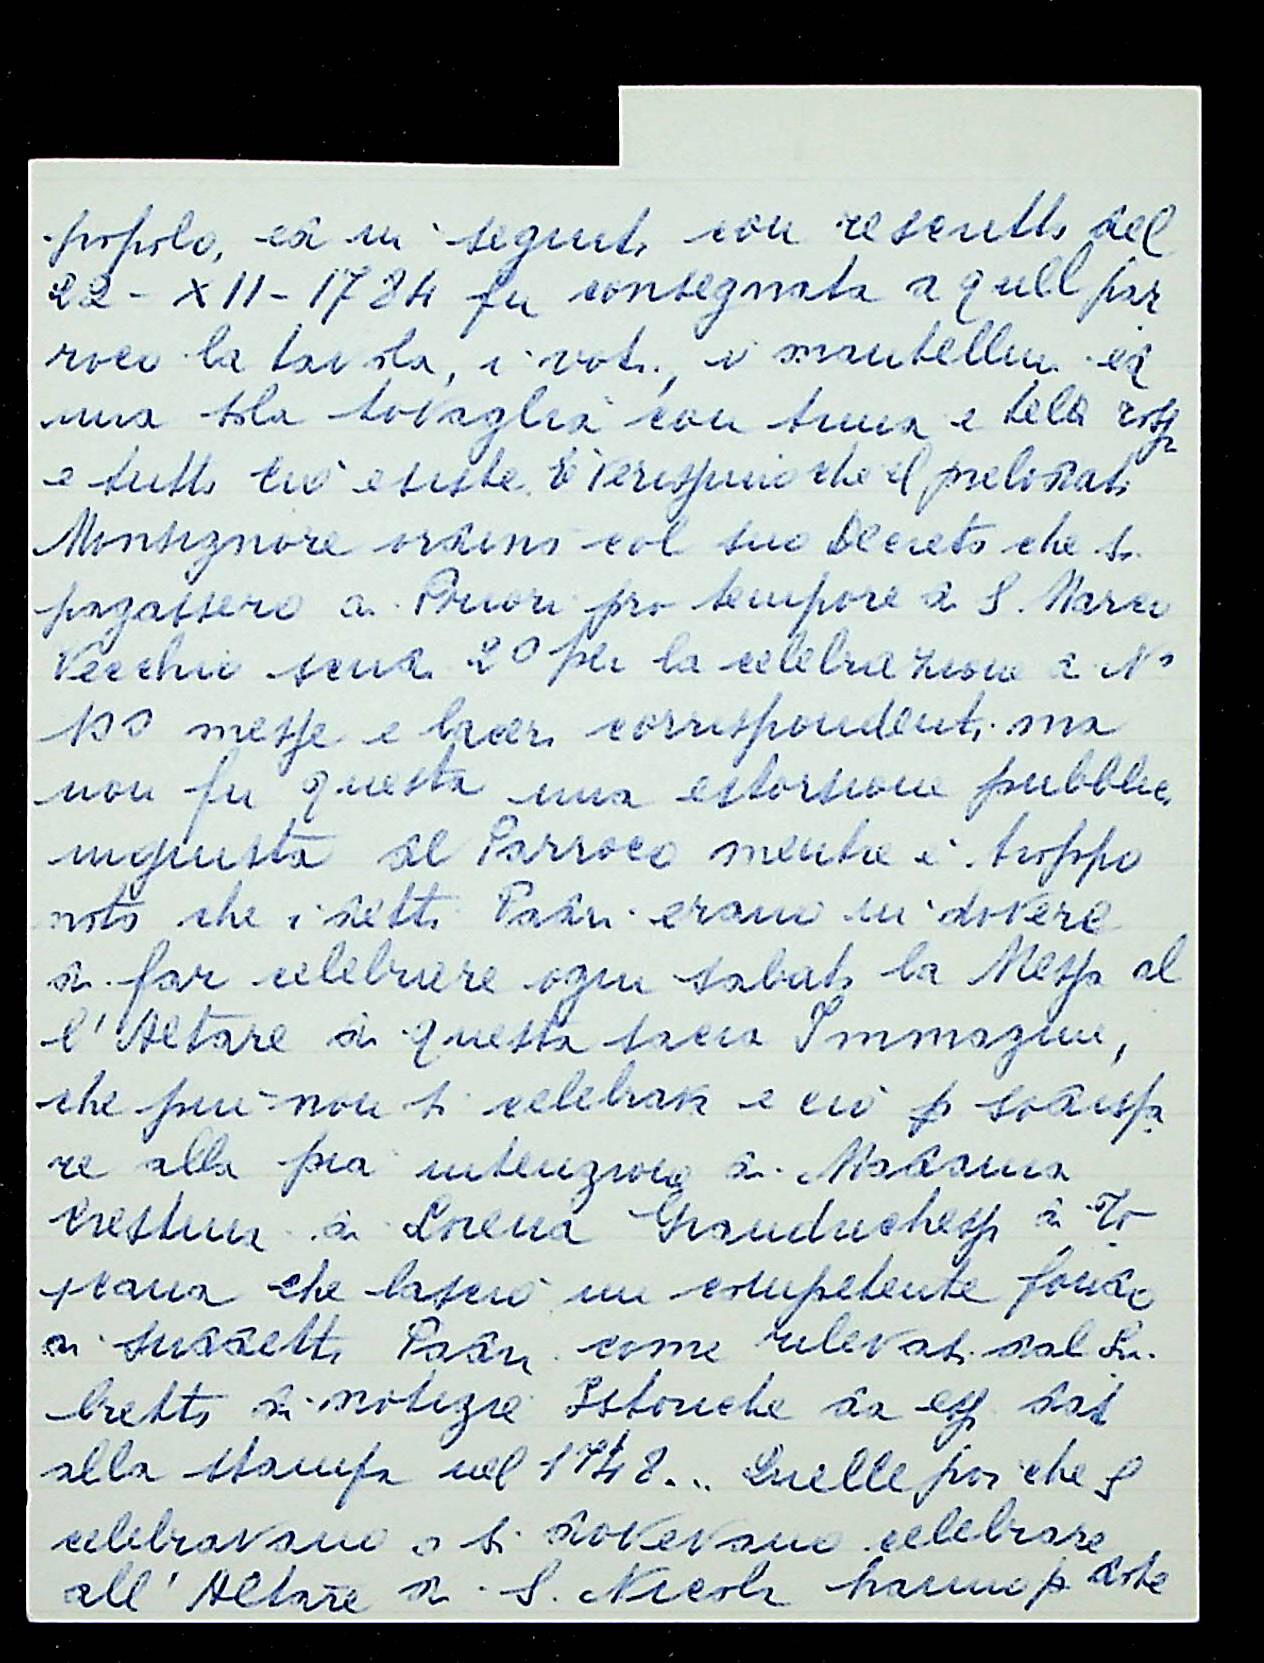 popolo, ed in seguito con rescritto del
22 - XII - 1784 fu consegnata a quell par
roco la tavola, i voti, i mantellini ed
una sola tovaglia con trina e tela rossa
e tutto ciò esiste. È verissimo che il prelodato
Monsignore ordinò col suo Decreto che si
pagassero ai Priori pro tempore di S. Marco
Vecchio scudi 20 per la celebrazione di N°
100 messe e laceri corrispondenti ma
non fu questa una estorsione pubblica
ingiusta del Parroco mentre è troppo
noto che i detti Padri erano in dovere
di far celebrare ogni sabato la Messa al
l'Altare di questa sacra Immagine,
che pur non si celebrava e ciò p sodisfa
re alla pia intenzione di Madama
Crestina di Lorena Granduchessa di To
scana che lasciò un competente fondo
ai suddetti Padri come rilevasi dal Li
bretto di notizie Istoriche da essi dat
alla stampa nel 1748... Quelle poi che si
celebravano o si dovevano celebrare
all'Altare di S. Nicola hanno p dote